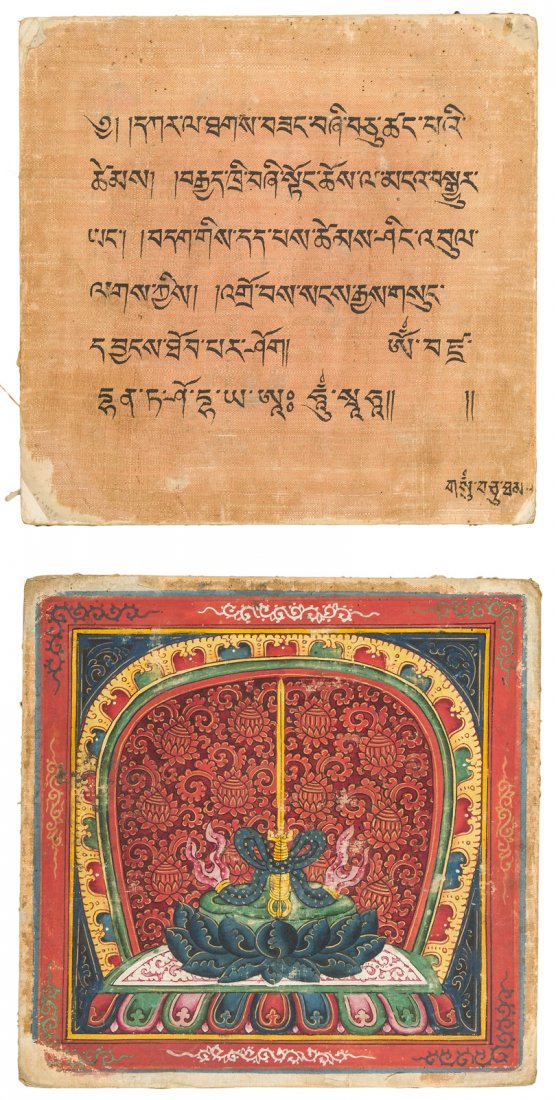 ༄། །དཀར་ལ་ཐགས་བཟང་བཞི་བཅུ་ཚང་བའི་
ཚེམས། །བརྒྱད་ཁྲི་བཞི་སྟོང་ཆོས་ལ་མངའ་བསྒྱུར་
ཡང་། །བདག་གིས་དད་པས་ཚེམས་ཤིང་འབུལ་
ལགས་ཀྱིས། །འགྲོ་བས་སངས་རྒྱས་གསུང་
ད་བྱངས་ཐོབ་པར་ཤོག། ཨོཾ་བཛྲ་
དྷན་ཏ་ཤོ་དྷ་ཡ་ཨཱཿ ཧཱུྃ་སྭཱ་ཧཱ༎ ༎
གསུྃ་བཅུ་ཐམ་